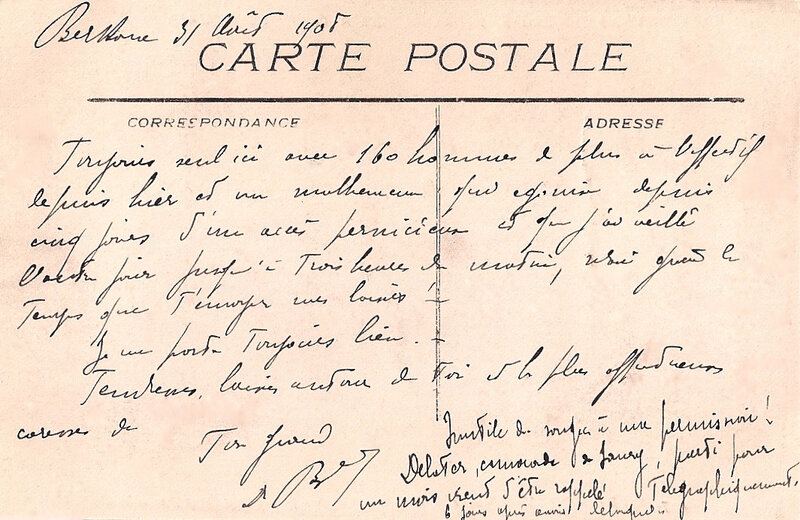 31 Août 1908
CARTE POSTALE
CORRESPONDANCE
ADRESSE
Toujours seul ici avec 160 hommes de plus à l'effectif
depuis hier et un malheureux qui agonise depuis
cinq jours d'un accès pernicieux et que j'ai veillé
jusqu'à trois heures du matin, voici quel le
temps que t'envoyer mes baisers ! –
Je me porte toujours bien. –
Tendresses, baisers autour de toi et les plus affectueuses
caresses de
Ton grand
D
Inutile de songer à une permission !
camarade de parti pour
un mois vient d'être rappelé Télégraphiquement,
6 jours après